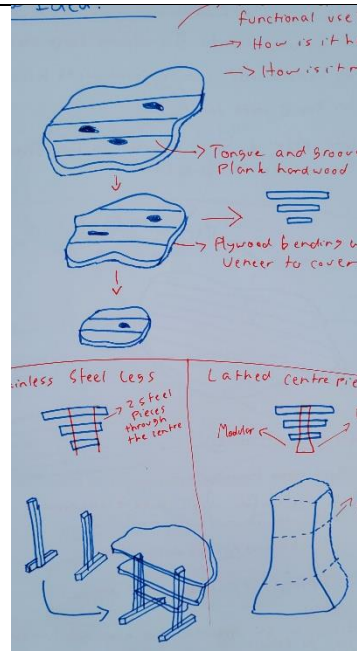 functional use
→ How is it
→ How is it
→ Tongue and groove
Plank hardwood
→ Plywood bending
Veneer to cover
Steel Legs
2 Steel
Pieces
through
the centre
Lathed Centre
Modular